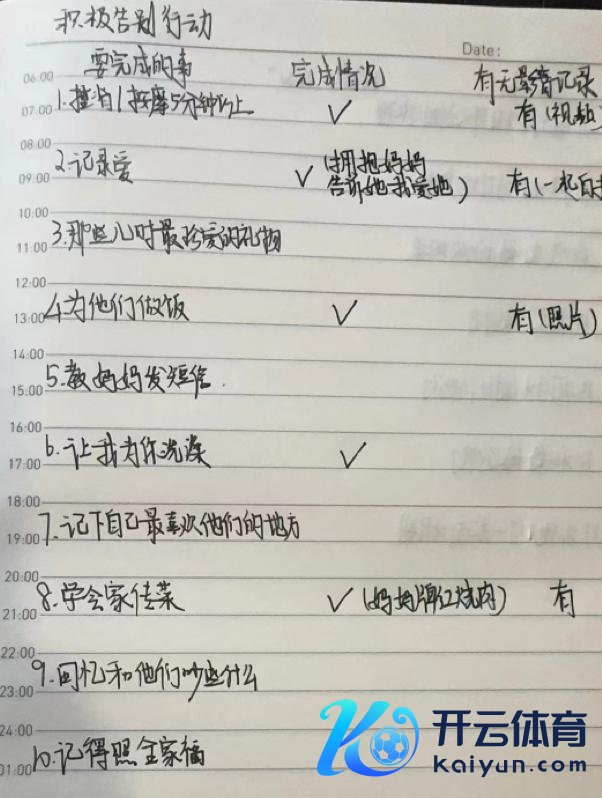 积极告别行动
Date:
要完成的事 完成情况 有无影音记录
06:00
07:00 1. 按摩5分钟以上 ✓ 有(视频)
08:00
2. 记录爱 ✓ (拥抱妈妈
09:00 告诉她我爱她) 有(一
10:00
11:00 3. 那些儿时最珍爱的礼物
12:00
13:00 4. 为他们做饭 ✓ 有(照片)
14:00
15:00 5. 教妈妈发短信.
16:00
17:00 6. 让我为你洗澡 ✓
18:00
19:00 7. 记下自己最喜欢他们的地方
20:00
21:00 8. 学会家传菜 ✓ (妈妈牌红烧肉) 有
22:00
23:00 9. 回忆和他们吵些什么
24:00
01:00 10. 记得照全家福
开云体育
Kaiyun.com